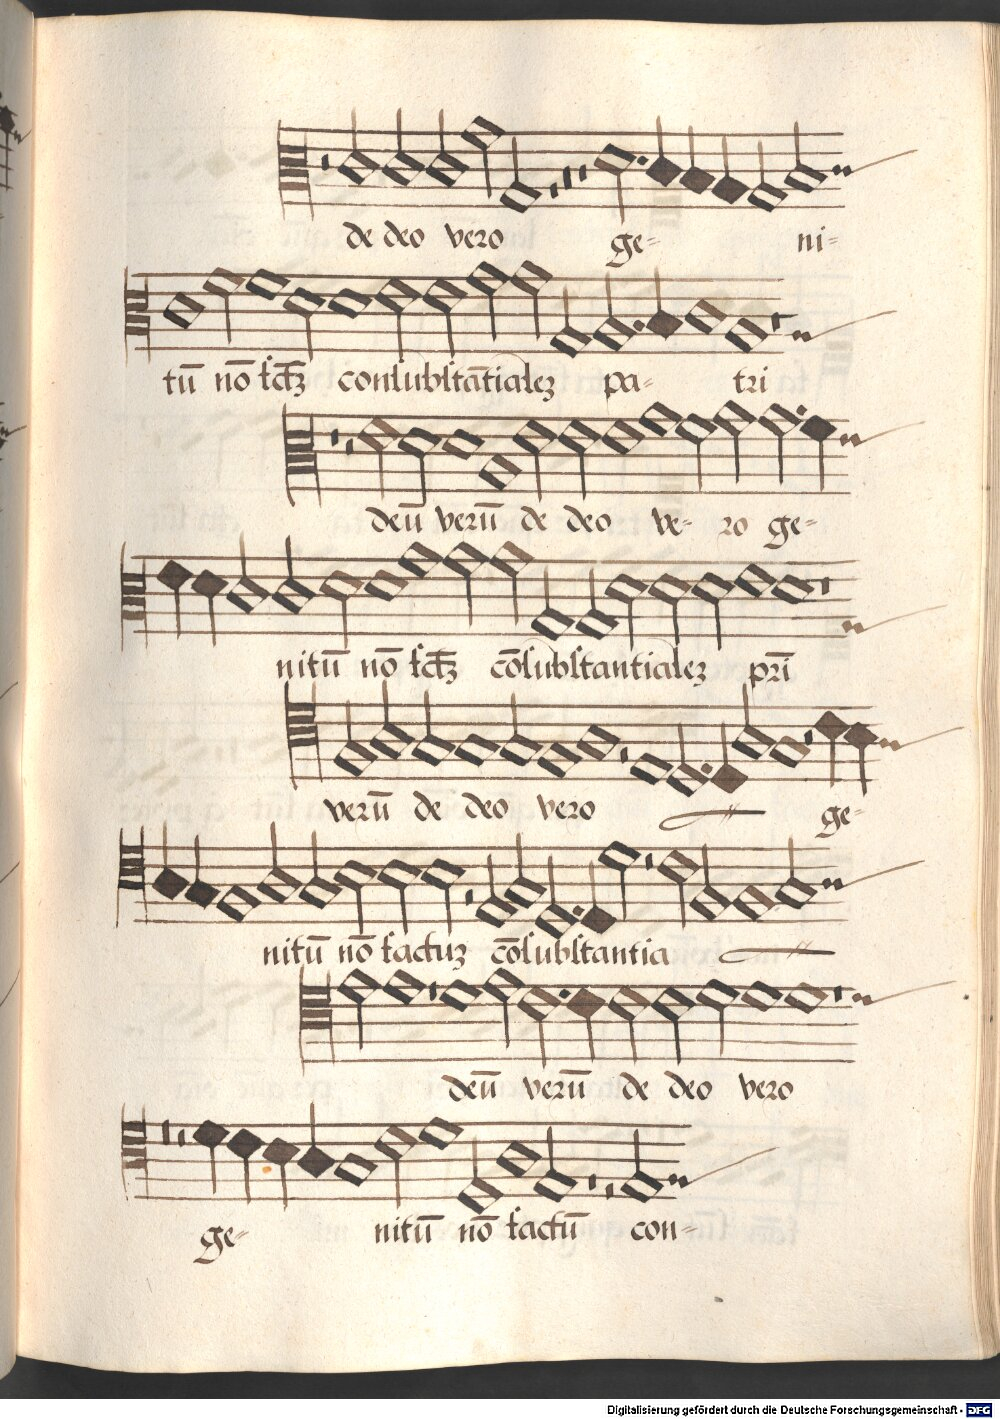 de deo vero ge- ni-
tū nō fctȝ consubstātialeȝ pa- tri
deū verū de deo ve- ro ge-
nitū nō fctȝ cōsubstantialeȝ pri̅
verū de deo vero ge-
nitū nō factuȝ cōsubstantia
deū verū de deo vero
ge- nitū nō factū con-
Digitalisierung gefördert durch die Deutsche Forschungsgemeinschaft - DFG